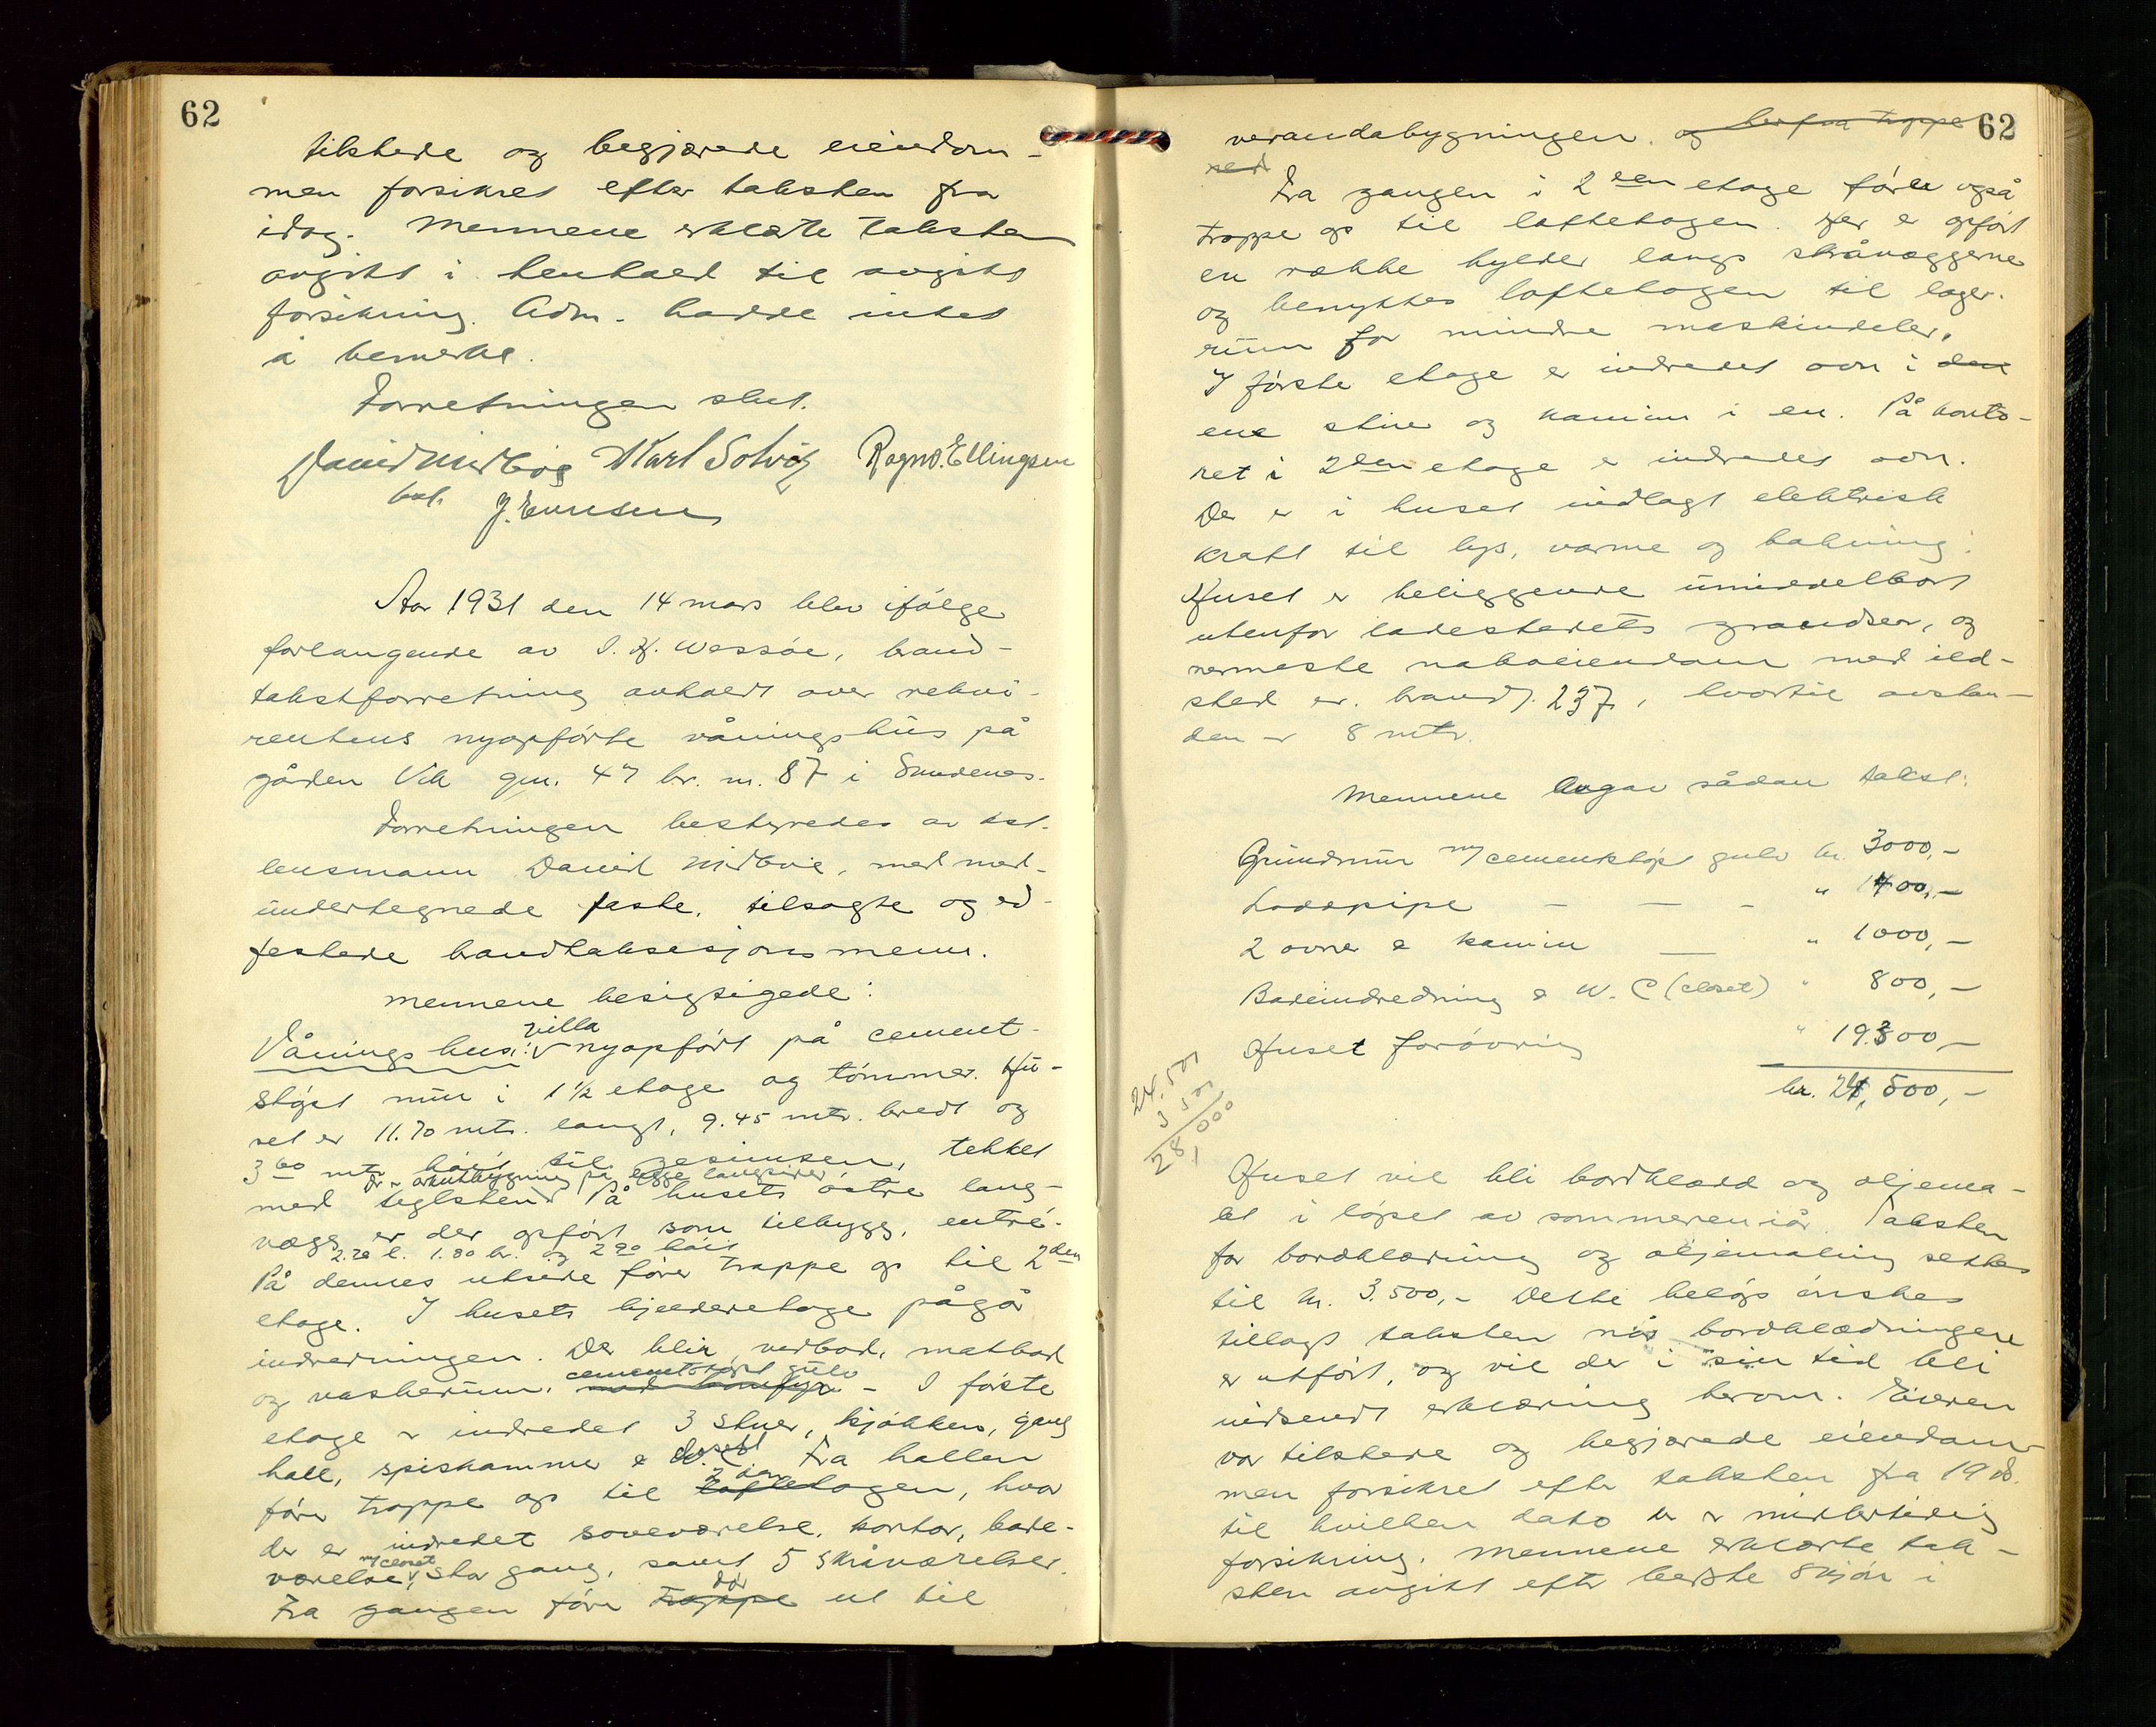 62
tilstede og begjærede eiendom-
men forsikret efter taksten fra
idag. Mennene erklærte taksten
avgitt i henhold til avgitt
forsikring. Adm. hadde intet
å bemerke.
Forretningen slut.
David Midbøe Karl Solvig Ragnv. Ellingsen
bet. J. Evensen
Aar 1931 den 14 mars blev ifölge
forlangende av I. H. Wessöe, brand-
takstforretning avholdt over rekvi-
rentens nyopförte våningshus på
gården Vik gm. 47 br. nr. 87 i Sundenes.
Forretningen bestyredes av kst.
lensmann David Midböe, med med-
undertegnede faste, tilsagte og ed-
festede brandtaksasjonsmenn.
Mennene besigtigede:
villa
Våningshus: nyopfört på cement-
stöpt mur i 1½ etage og tömmer. Hu-
set er 11.70 mtr. langt, 9.45 mtr. bredt og
3 60 mtr. höit til gesimsen, tekket
Der er arkutbygning på begge langsider
med teglsten. På husets östre lang-
vegg er der opfört som tilbygg, entré.
2.20 l. 1.80 br. og 2 90 höit
På dennes utside förer trappe op til 2den
etage. I husets kjælderetage pågår
indredningen. Der blir vedbod, matbod
cementstöpt gulv
og vaskerum. med komfyr - I förste
etage er indredet 3 stuer, kjökken, gang
hall, spiskammer & W.C. closet Fra hallen
2 den
förer trappe op til loftetagen, hvor
der er indredet soveværelse, kontor, bade-
m/closet
værelse, stor gang, samt 5 skråværelser.
dör
Fra gangen förer trappe ut til
62
verandabygningen. og herfra trappe
ned
Fra gangen i 2 den etage förer også
trappe op til loftetagen. Her er opfört
en række hylder langs skråvæggerne
og benyttes loftetagen til lager-
rum for mindre maskindeler.
I förste etage er indredet ovn i den
ene stue og kamin i en. På konto-
ret i 2den etage er indredet ovn.
Der er i huset indlagt elektrisk
kraft til lys, varme og kokning.
Huset er beliggende umiddelbart
utenfor ladestedets grændser, og
nermeste naboeiendom med ild-
sted er brand. 237, hvortil avstan-
den er 8 mtr.
Mennene avgav sådan takst:
Grundmur m/ cementstöpt gulv kr. 3000,-
Loddpipe - - - " 1400,-
2 ovner & kamin - " 1000,-
Badeindredning & W.C (closet) " 800,-
Huset forövrig " 19.300,-
kr. 24,500,-
24.500
3 500
28,000
Huset vil bli bordklædd og oljema-
let i löpet av sommeren iår. Taksten
for bordklædning og oljemaling settes
til kr. 3.500,- Dette belöp önskes
tillagt taksten når bordklædningen
er utfört, og vil der i sin tid bli
indsendt erklæring herom. Eieren
var tilstede og begjærede eiendom-
men forsikret efter taksten fra 19 ds.
til hvilken dato der er midlertidig
forsikring. Mennene erklærte tak-
sten avgitt efter beste skjön i